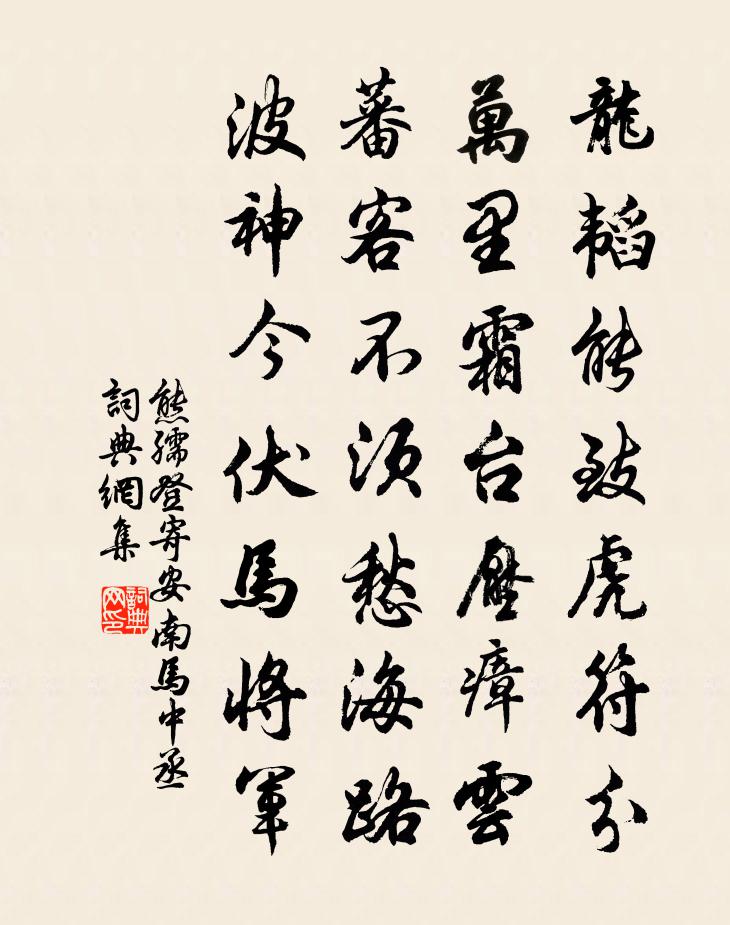 龍韜能致虎符分
萬里霜台壓瘴雲
蕃客不須愁海路
波神今伏馬將軍
熊孺登寄安南馬中丞
詞典網集
詞典網印